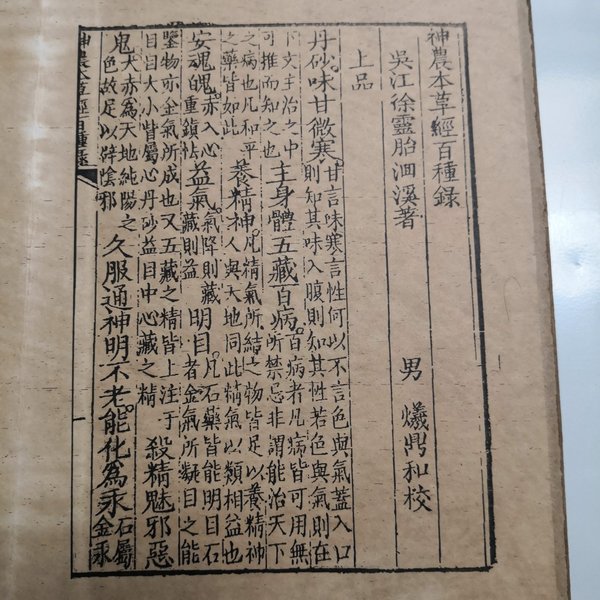 神農本草經百種錄
吳江徐靈胎洄溪著　男　爔鼎和校
上品
丹砂味甘微寒甘言味寒言性何以不言色與氣蓋入口則知其味入腹則知其性若色與氣則在
下文主治之中可推而知之也主身體五藏百病百病者凡病皆可用無所禁忌非謂能治天下
之病也凡和平之藥皆如此養精神凡精氣所結之物皆足以養精神人與天地同此精氣以類相益也
安魂魄赤入心重鎮怯益氣氣降則藏藏則益明目凡石藥皆能明目石者金氣所凝目之能
鑒物亦金氣所成也又五藏之精皆上注于目目大小眥屬心丹砂益目中心藏之精殺精魅邪惡
鬼大赤為天地純陽之色故足以辟陰邪久服通神明不老能化為汞石屬金汞
神農本草經百種錄